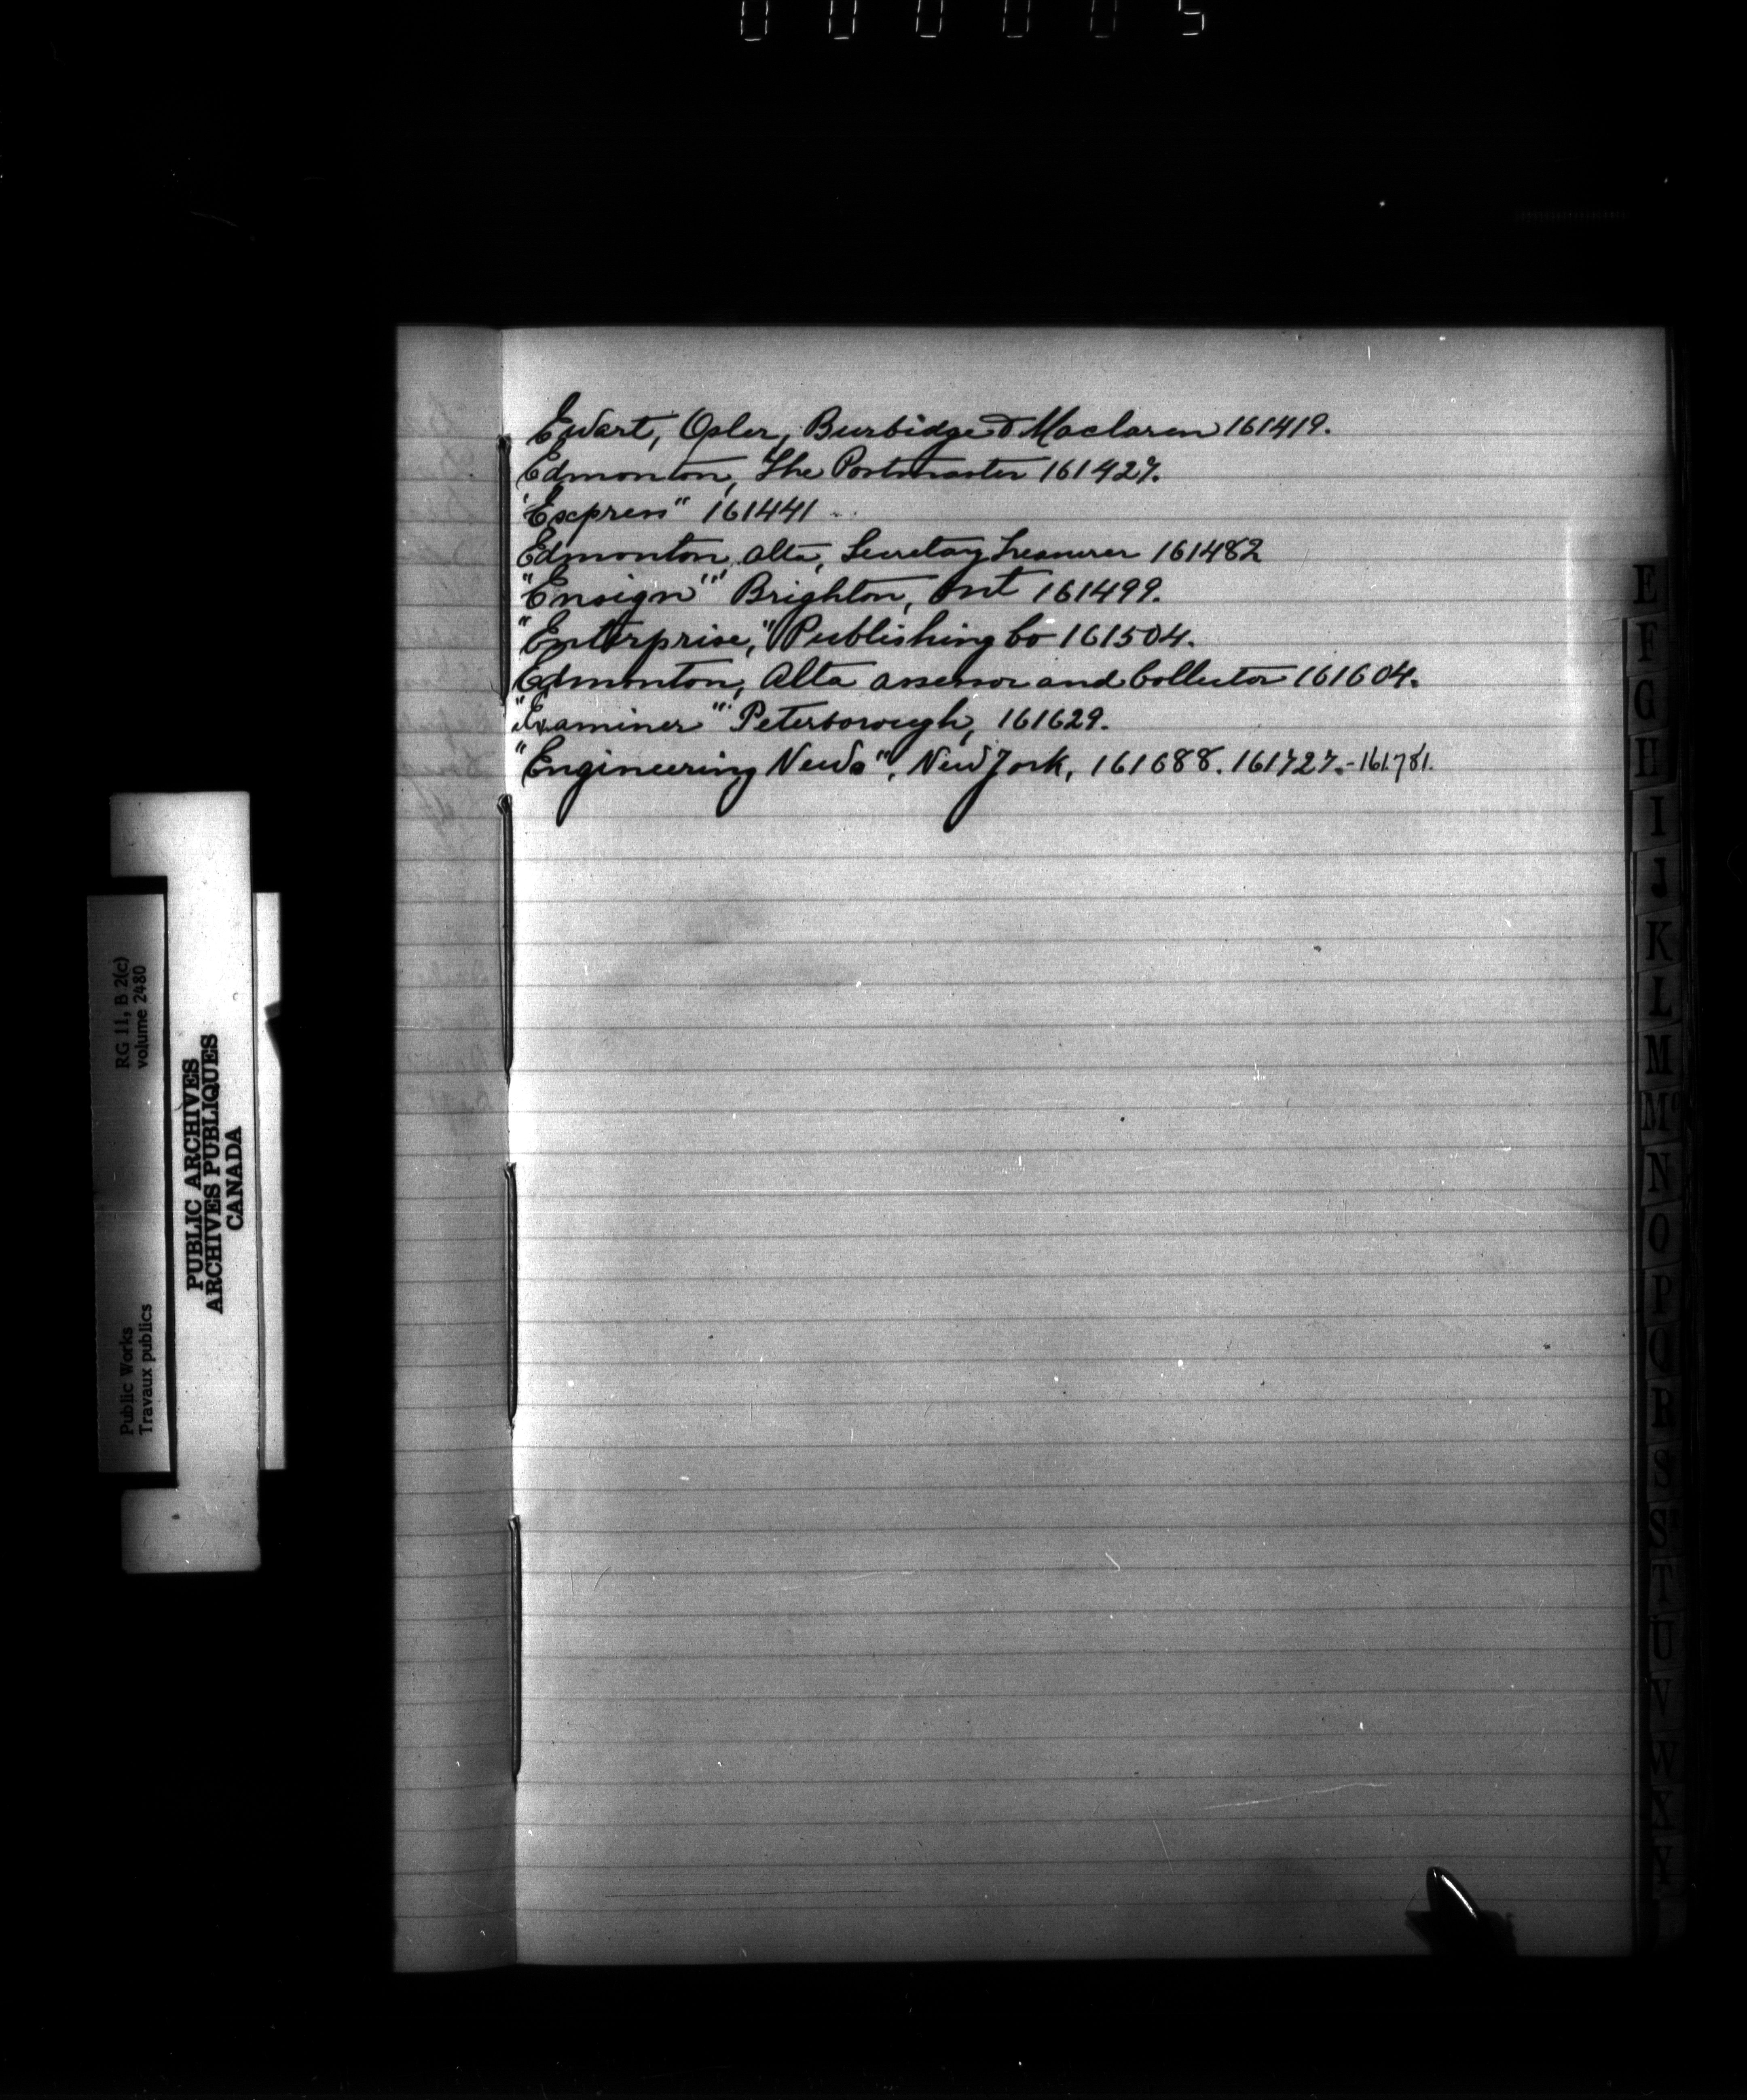 000005
Ewart, Osler, Burbidge & Maclaren 161419.
Edmonton, The Postmaster 161427.
"Express" 161441
Edmonton, Alta, Secretary Treasurer 161482
"Ensign" Brighton, Ont 161499.
"Enterprise," Publishing Co 161504.
Edmonton, Alta assessor and Collector 161604.
"Examiner" Peterborough, 161629.
"Engineering News", New York, 161688. 161727.-161781.
E
F
G
H
I
J
K
L
M
Mc
N
O
P
Q
R
S
St
T
U
V
W
X
Y
RG 11, B 2(c)
volume 2480
Public Works
Travaux publics
PUBLIC ARCHIVES
ARCHIVES PUBLIQUES
CANADA